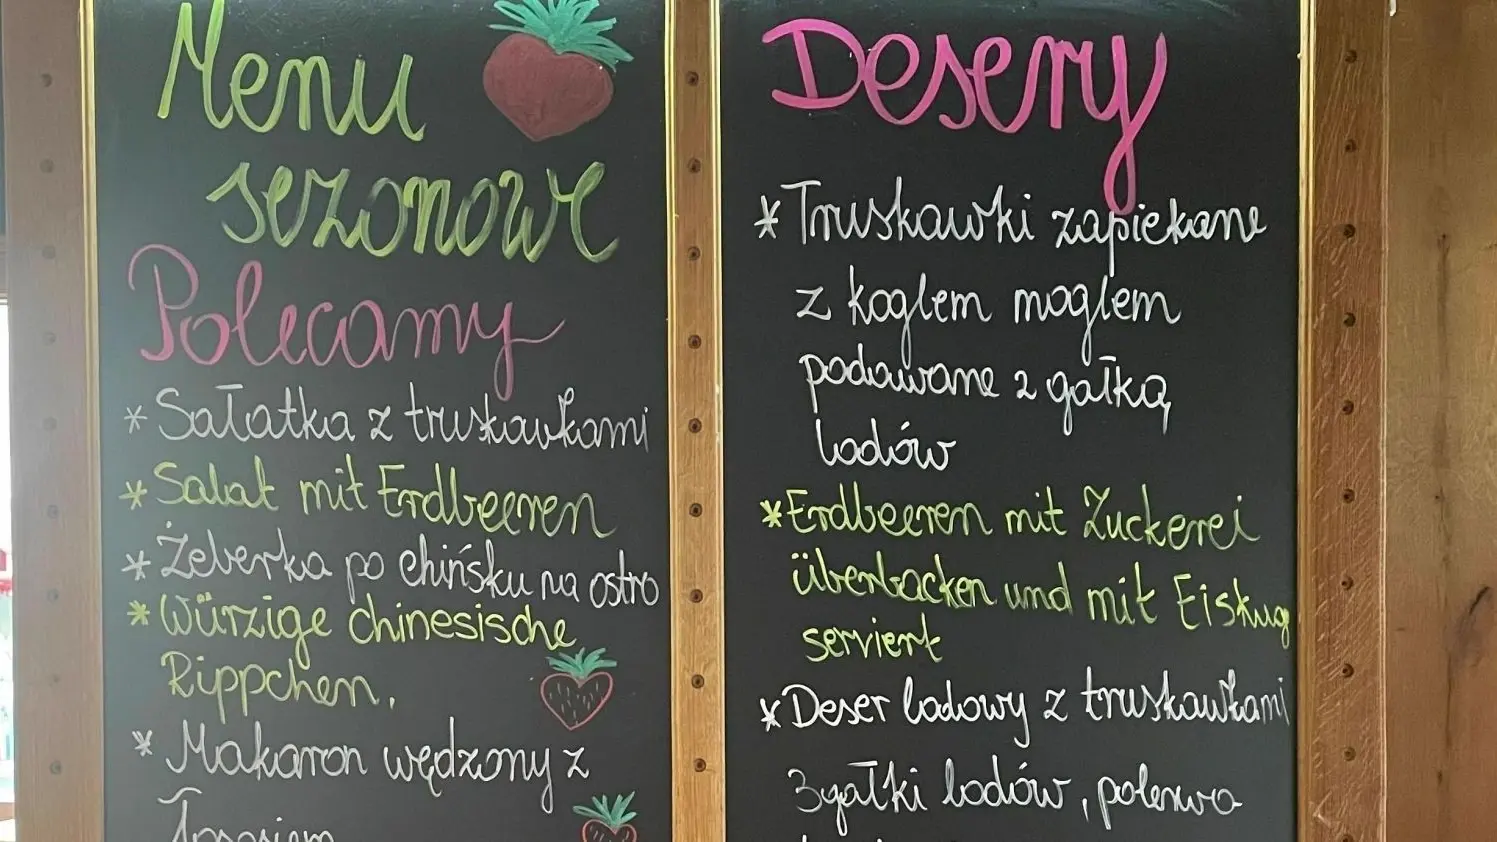 Menu
sezonowe
Polecamy
* Sałatka z truskawkami
* Salat mit Erdbeeren
* Żeberka po chińsku na ostro
* Würzige chinesische
Rippchen.
* Makaron wędzony z
Łososiem
Desery
* Truskawki zapiekane
z koglem moglem
podawane z gałką
lodów
* Erdbeeren mit Zuckerei
überbacken und mit Eiskug
serviert
* Deser lodowy z truskawkami
3 gałki lodów, polewa